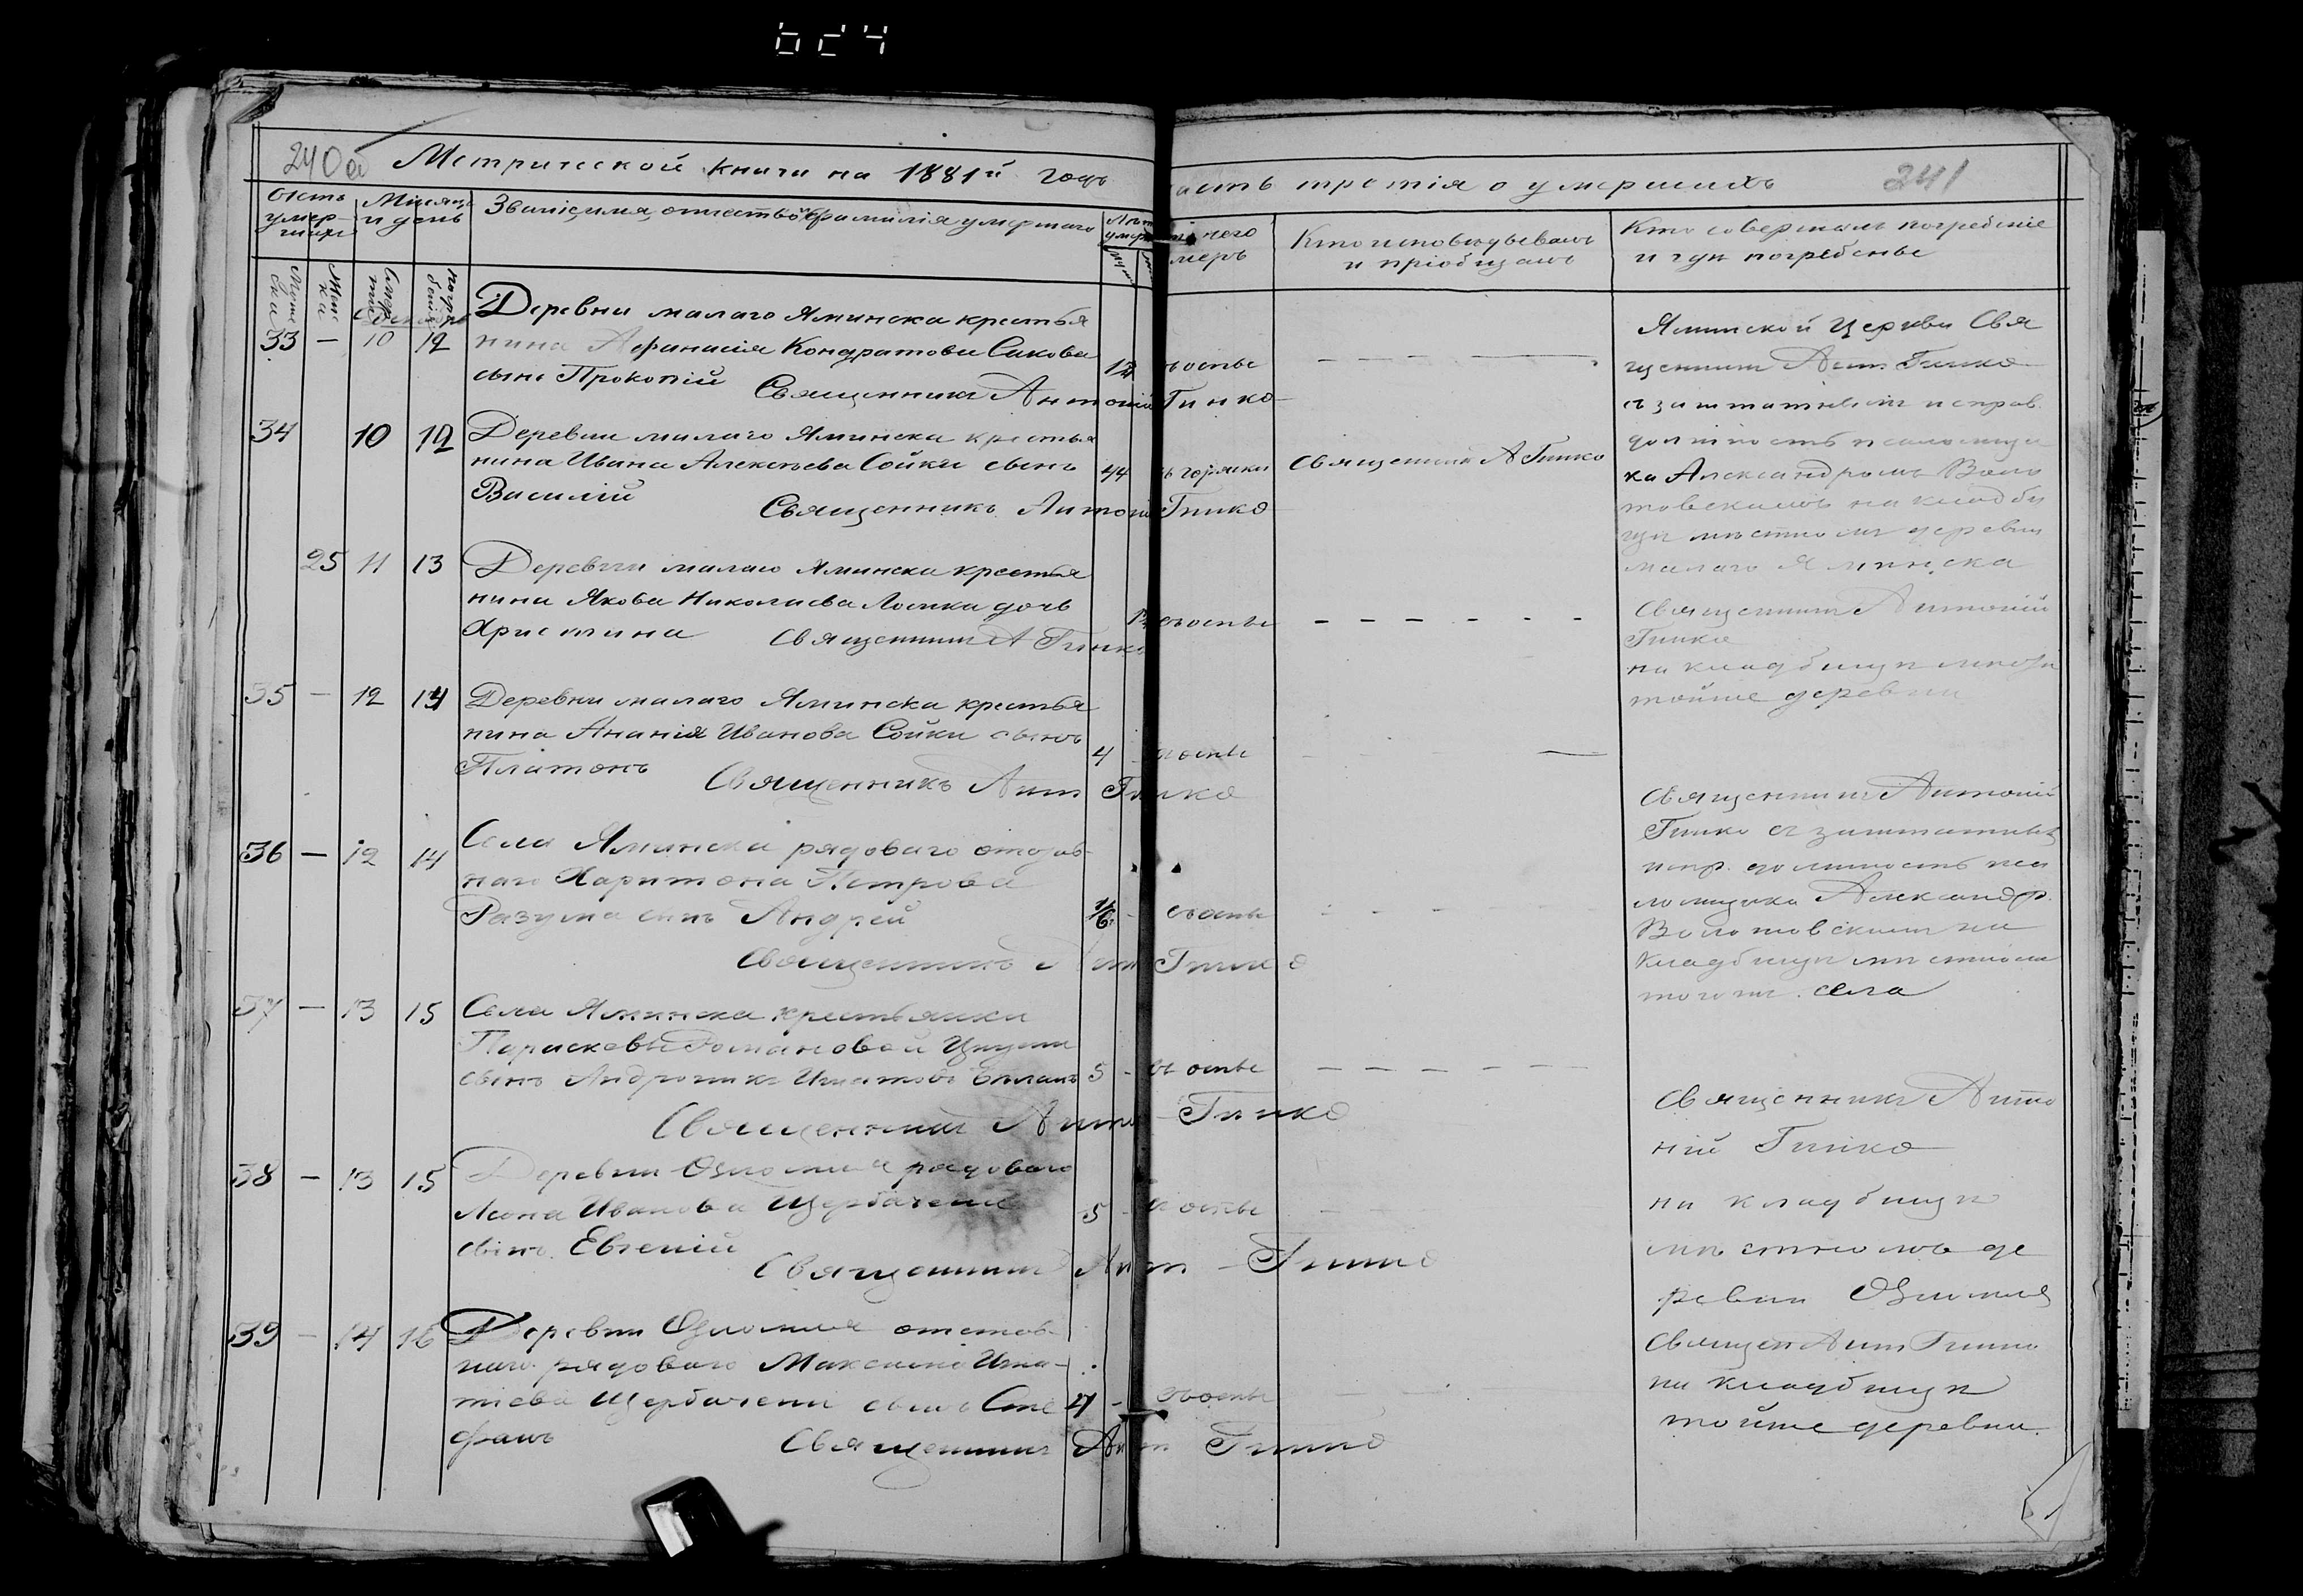 240об Метрической книги на 1881й годъ
часть третія о умершихъ 241
Счетъ умер-шихъ
Мѣсяцъ и день
Званіе, имя, отчество и фамилія умершаго
Лѣта умерш
чего
меръ
Кто исповѣдывалъ
и пріобщалъ
Кто совершалъ погребеніе
и гдѣ погребены
33 — 10 12
Деревни малаго Яминска крестья
нина Афанасія Кондратова Сакова
сынъ Прокопій 12 оспы
Священникъ Антоній Гинко
34 10 12
Деревни малаго Яминска крестья
нина Ивана Алексѣева Сойки сынъ
Василій 44 горячки Священникъ А Гинко
Священникъ Антоній Гинко
Яминской Церкви Свя
щенникъ Ант. Гинко
съ заштатнымъ исправ.
должность псаломщи
ка Александромъ Воло
товскимъ на кладби
щѣ мѣстномъ деревни
малаго Яминска
25 11 13
Деревни малаго Яминска крестья
нина Якова Николаева Ломка дочь
Христина оспы
Священникъ А Гинко
Священникъ Антоній
Гинко
на кладбищѣ
тойже деревни
35 — 12 14
Деревни малаго Яминска крестья
нина Ананія Иванова Сойки сынъ
Платонъ 4 оспы
Священникъ Ант Гинко
36 — 12 14
Села Яминска рядоваго
Харитона Петрова
Разума сынъ Андрей 1/6 оспы
Священникъ Ант Гинко
Священникъ Антоній
Гинко съ заштатнымъ
испр. должность пса
ломщика Александр.
Волотовскимъ на
кладбищѣ мѣстномъ
тогоже села
37 — 13 15
Села Яминска крестьянки
Параскевы Романовой
сынъ Андроникъ 5 оспы
Священникъ Анто Гинко
38 — 13 15
Деревни рядоваго
Леона Иванова Щербачени
сынъ Евгеній 5 оспы
Священникъ Ант Гинко
Священникъ Анто
ній Гинко
на кладбищѣ
мѣстномъ де
ревни
39 — 14 16
Деревни отстав
наго рядоваго Максима Игна-
тіева Щербачени сынъ Сте
фанъ 4 оспы
Священникъ Ант Гинко
Священ Ант Гинко
на кладбищѣ
тойже деревни.